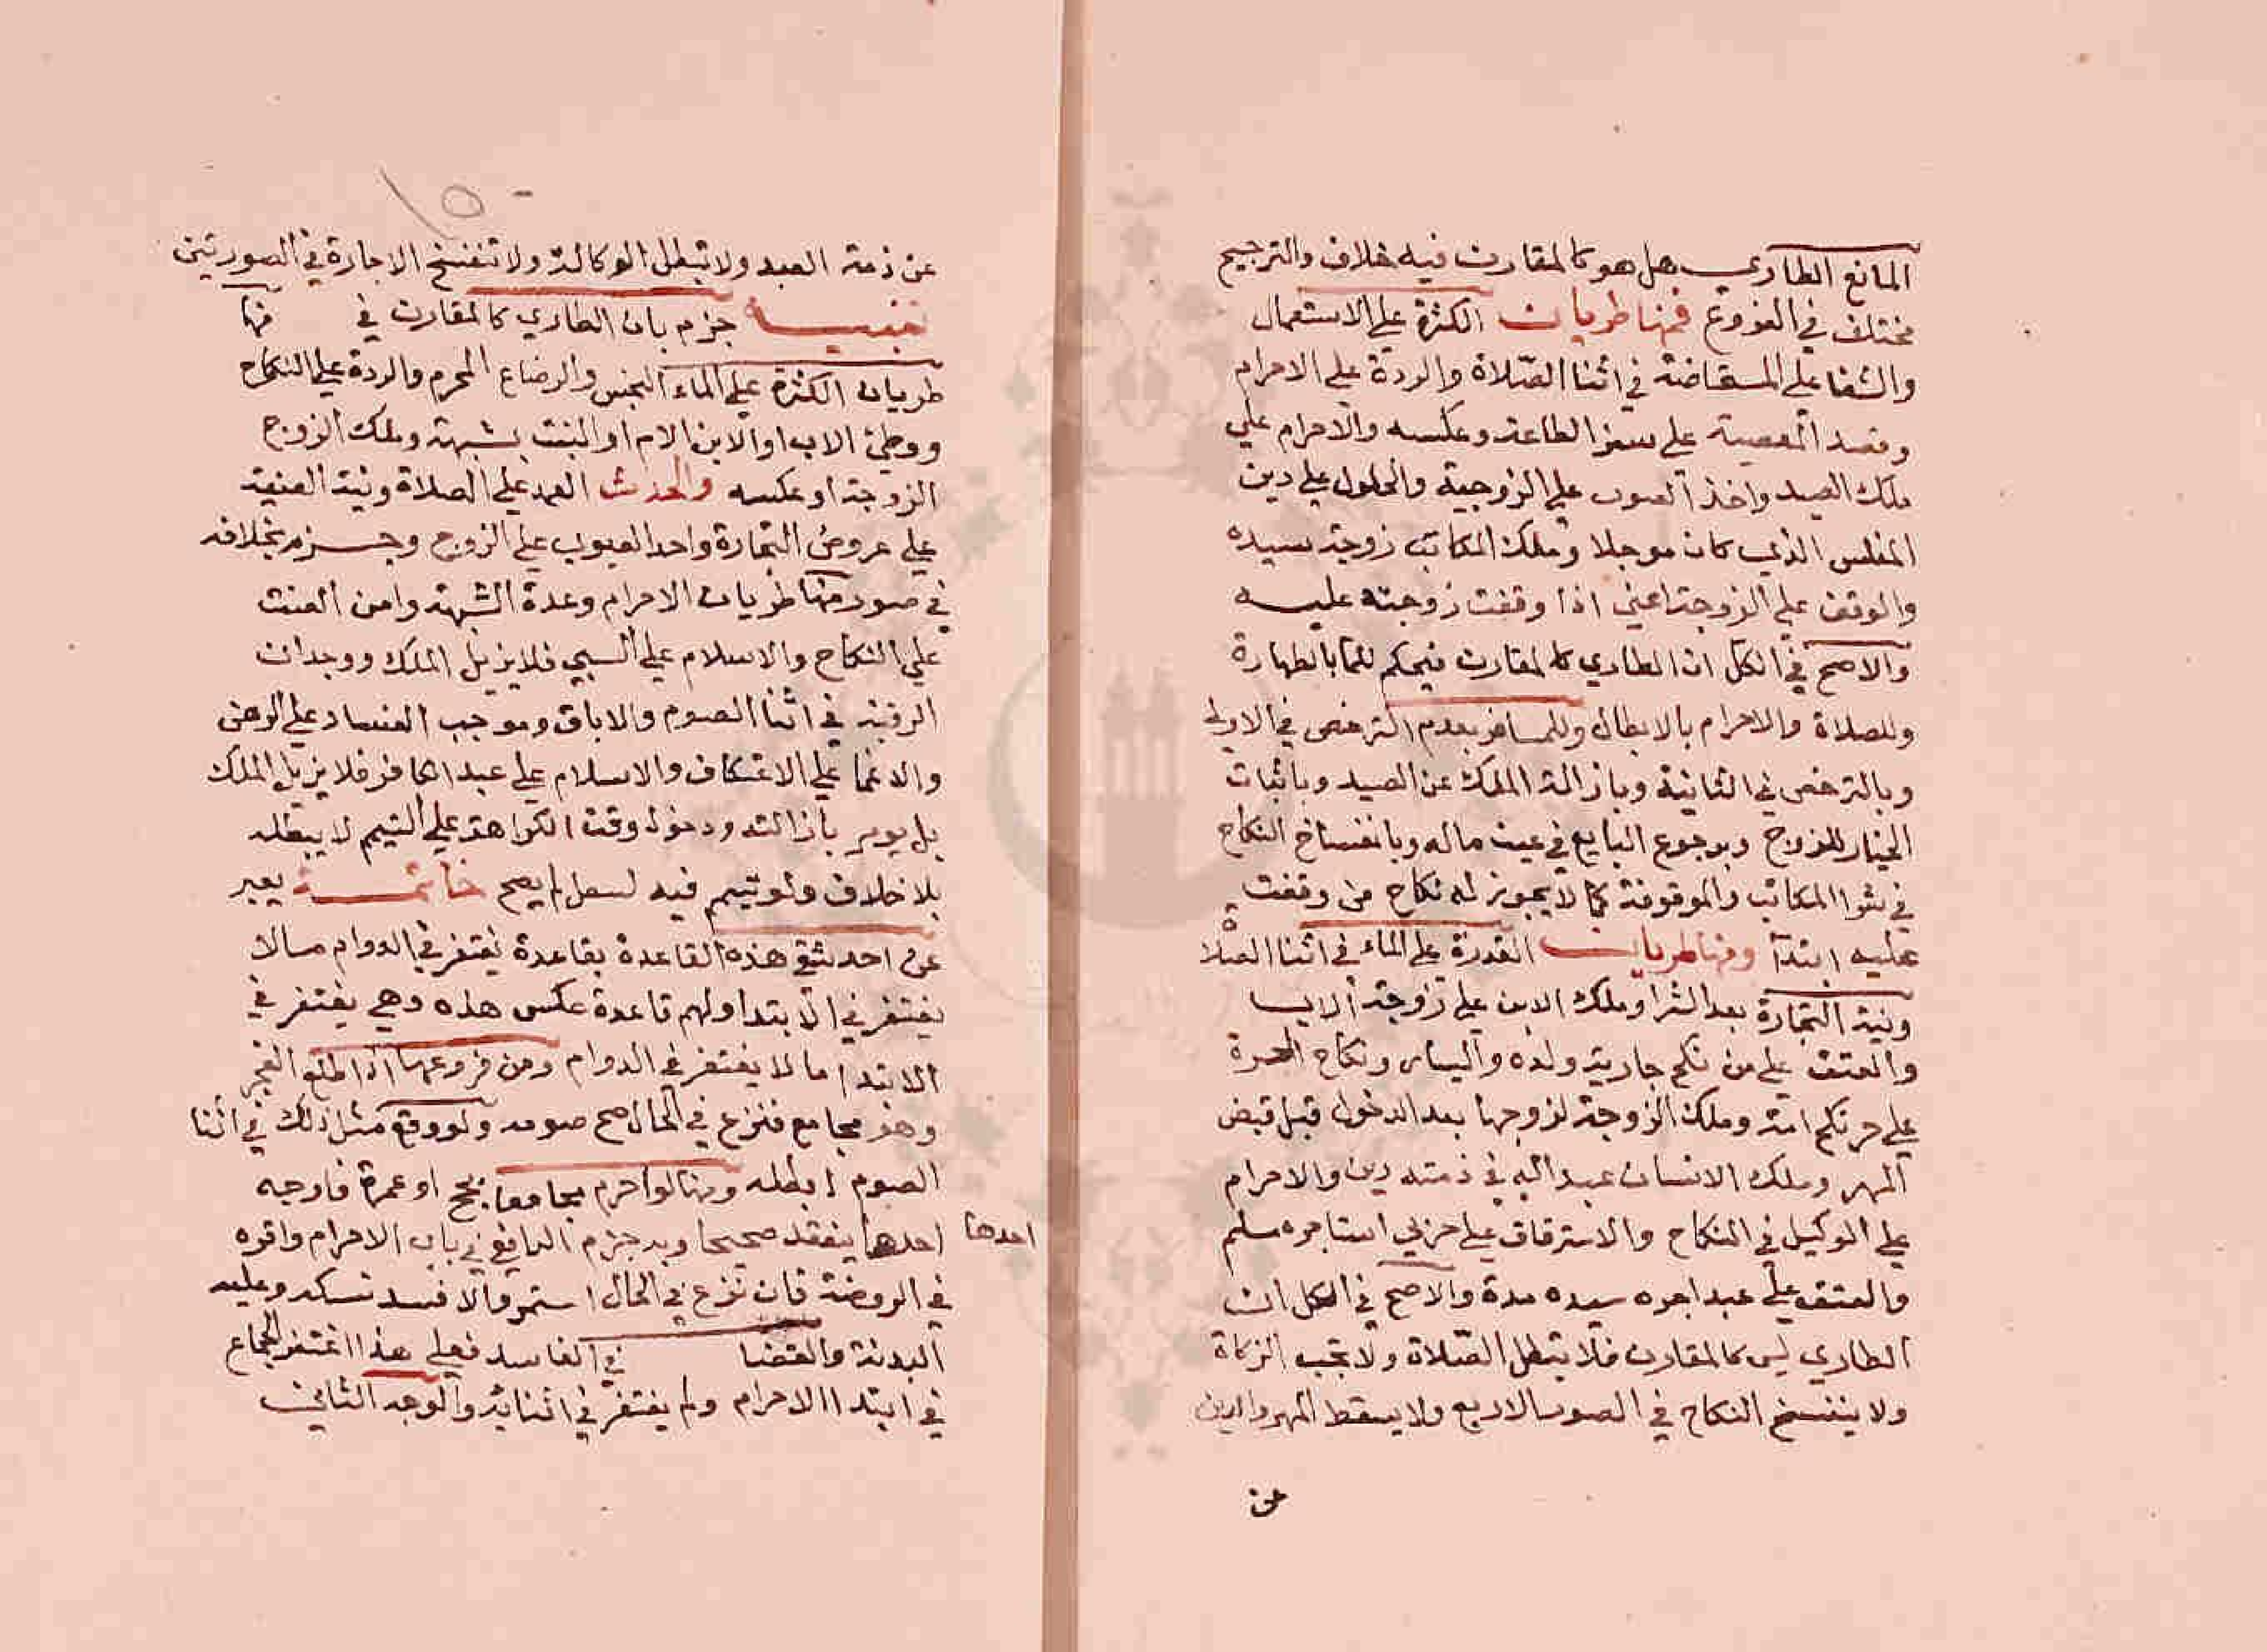 المانع الطاري هل هو كالمقارن فيه خلاف والترجيح
مختلف في الفروع فمنها طريان الكثرة على الاستعمال
والشفا على المستحاضة في اثنا الصلاة والردة على الاحرام
وقصد المعصية على سفر الطاعة وعكسه والاحرام على
ملك الصيد واخذ العيوب على الزوجية والحلول على دين
المفلس الذي كان موجلا وملك المكاتب زوجة سيده
والوقف على الزوجة اعني اذا وقفت زوجته عليه
والاصح في الكل ان الطاري كالمقارن فيحكم للما بالطهارة
وللصلاة والاحرام بالابطال وللمسافر بعدم الترخص في الاولى
وبالترخص في الثانية وبازالة الملك عن الصيد وباثبات
الخيار للزوج وبرجوع البايع في عين ماله وبانفساخ النكاح
في شرا المكاتب والموقوفة كما لا يجوز له نكاح من وقفت
عليه ابتدآ ومنها طريان القدرة على الماء في اثنا الصلاة
ونية التجارة بعد الشرا وملك الابن على زوجة الاب
والعتق على من نكح جارية ولده واليسار ونكاح الحرة
على حر نكح امة وملك الزوجة لزوجها بعد الدخول قبل قبض
المهر وملك الانسان عبدا له في ذمته دين والاحرام
على الوكيل في النكاح والاسترقاق على حربي استاجره مسلم
والعتق على عبد اجره سيده مدة والاصح في الكل ان
الطاري ليس كالمقارن فلا تبطل الصلاة ولا تجب الزكاة
ولا ينفسخ النكاح في الصور الاربع ولا يسقط المهر والدين
عن
١٥
عن ذمة العبد ولا تبطل الوكالة ولا تنفسخ الاجارة في الصورتين
تنبيه جزم بان الطاري كالمقارن في منها
طريان الكثرة على الماء النجس والرضاع المحرم والردة على النكاح
ووطئ الاب او الابن الام او البنت بشبهة وملك الزوج
الزوجة او عكسه والحدث العمد على الصلاة ونية القنية
على عروض التجارة واحد العيوب على الزوج وجزم بخلافه
في صور منها طريان الاحرام وعدة الشبهة وامن العنت
على النكاح والاسلام على السبي فلا يزيل الملك ووجدان
الرقبة في اثنا الصوم والاباق وموجب الفساد على الرهن
والاغما على الاعتكاف والاسلام على عبد الكافر فلا يزيل الملك
بل يومر بازالته ودخول وقت الكراهة على التيمم لا يبطله
بلا خلاف ولو تيمم فيه لم يصح خاتمة يعبر
عن احد شقي هذه القاعدة بقاعدة يغتفر في الدوام ما لا
يغتفر في الابتدا ولهم قاعدة عكس هذه وهي يغتفر في
الابتدا ما لا يغتفر في الدوام ومن فروعها اذا طلع الفجر
وهو مجامع فنزع في الحال صح صومه ولو وقع مثل ذلك في اثنا
الصوم ابطله ومنها لو احرم مجامعا بحج او عمرة فاوجه
احدها احدها ينعقد صحيحا وبه جزم الرافعي في باب الاحرام واقره
في الروضة فان نزع في الحال استمر والا فسد نسكه وعليه
البدنة والقضا في الفاسد فعلى هذا اغتفر الجماع
في ابتدا الاحرام ولم يغتفر في اثنائه والوجه الثاني